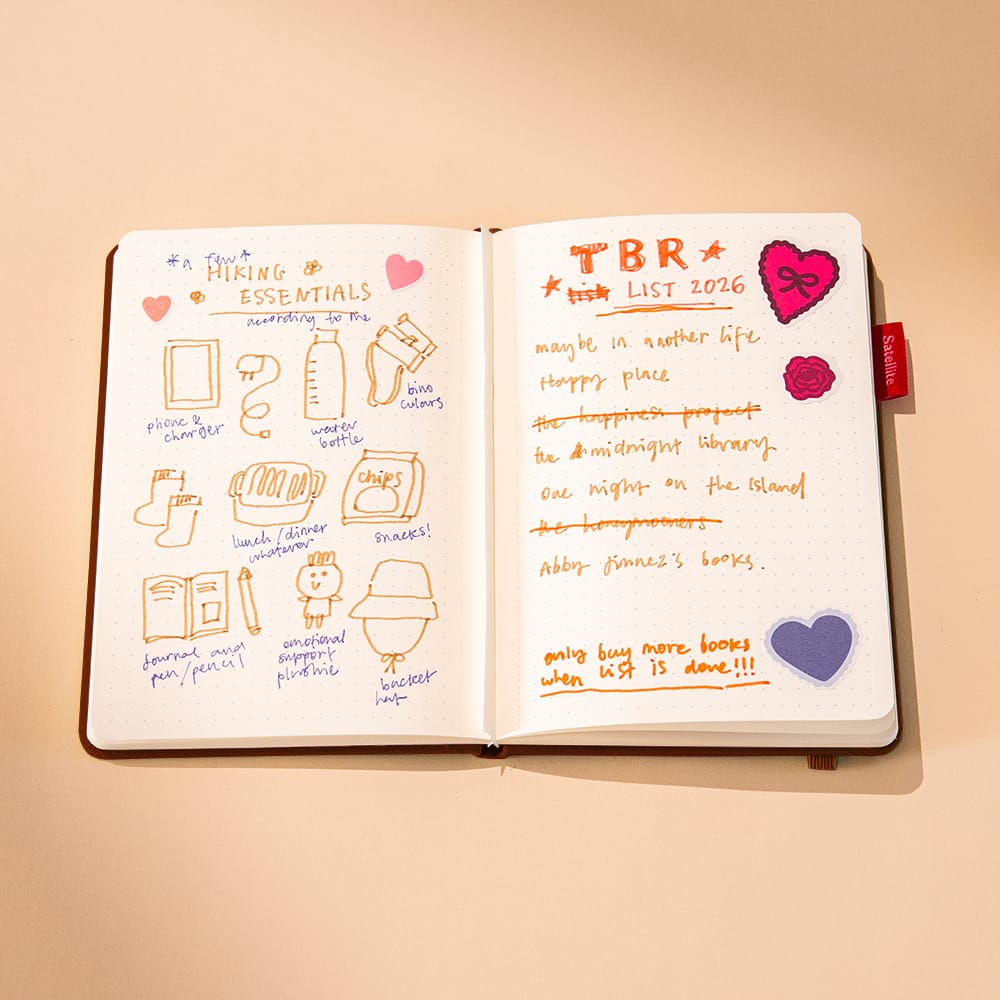 *a few*
HIKING
ESSENTIALS
according to me
phone &
charger
water
bottle
bino
culars
lunch/dinner
whatever
chips
snacks!
Journal and
pen/pencil
emotional
support
plushie
bucket
hat
TBR
list LIST 2026
maybe in another life
Happy place
the happiness project
the midnight library
one night on the Island
the honeymooners
Abby Jimnez's books.
only buy more books
when list is done!!!
Satellite